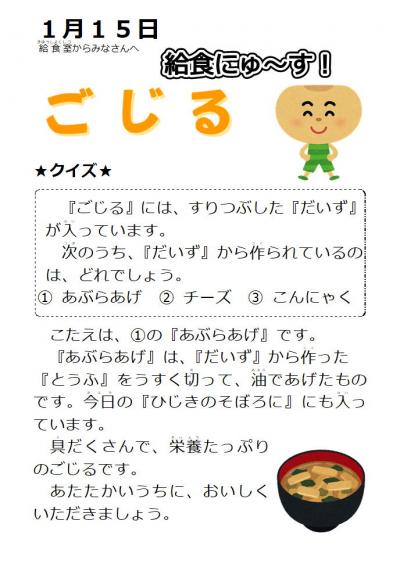 １月１５日
給食室からみなさんへ
給食にゅ～す！
ごじる
★クイズ★
『ごじる』には、すりつぶした『だいず』
が入っています。
次のうち、『だいず』から作られているの
は、どれでしょう。
① あぶらあげ　② チーズ　③ こんにゃく
こたえは、①の『あぶらあげ』です。
『あぶらあげ』は、『だいず』から作った
『とうふ』をうすく切って、油であげたもの
です。今日の『ひじきのそぼろに』にも入っ
ています。
具だくさんで、栄養たっぷり
のごじるです。
あたたかいうちに、おいしく
いただきましょう。